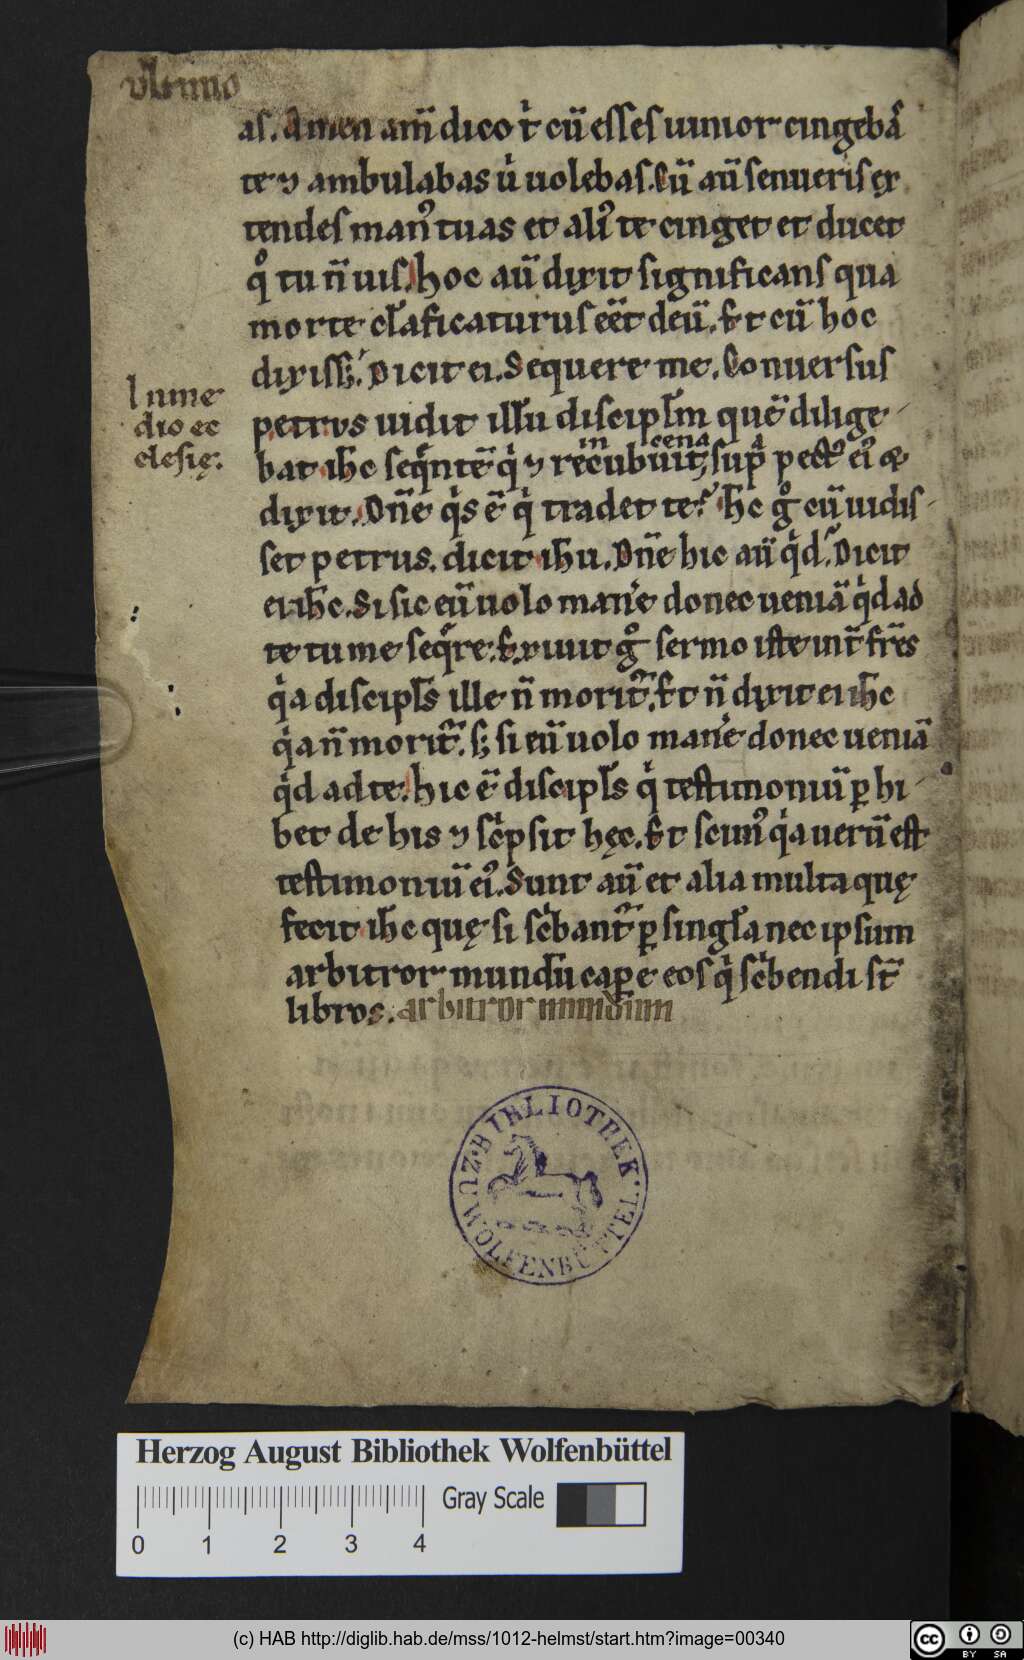 ultimo
as. Amen am̄ dico t̍ cū esses iunior cingebas̄
te ⁊ ambulabas u̍ uolebas. Cū aū senueris ex
tendes manꝰ tuas et aliꝰ te cinget et ducet
qͦ tu n̄ uis. hoc aū dixit significans qua
morte cl̄aficaturus eēt deū. Et cū hoc
dixiss; Dicit ei. Sequere me. Conuersus
In me
dio ec
clesię.
petrus uidit illū discipl̄m quē dilige
bat ih̄c seqͣntē q̍ ⁊ recubuit sup̄ pectꝰ eiꝰ &
in cena
dixit. Dn̄e q̍s ē q̍ tradet te? h̄c gͦ cū uidis
set petrus. dicit ih̄u. Dn̄e hic aū q̍d? Dicit
ei ih̄c. Si sic eū uolo man̍e donec ueniā q̍d ad
te tu me seq̄re. Exiuit gͦ sermo iste int̄ fr̄es
q̍a discipl̄s ille n̄ morit᷑. Et n̄ dixit ei ih̄c
q̍a n̄ morit᷑. s; si eū uolo man̍e donec ueniā
q̍d ad te. hic ē discipl̄s q̍ testimoniū ꝑhi
bet de his ⁊ sc̍psit hęc. Et scimꝰ q̍a uerū est
testimoniū eiꝰ. Sunt aū et alia multa quę
fecit ih̄c quę si sc̍bant᷑ ꝑ singl̄a nec ipsum
arbitror mundū capꝑe eos q̍ sc̍bendi st̄
libros. arbitror mundum
BIBLIOTHEK · WOLFENBÜTTEL
Herzog August Bibliothek Wolfenbüttel
Gray Scale
0 1 2 3 4
(c) HAB http://diglib.hab.de/mss/1012-helmst/start.htm?image=00340
cc BY SA